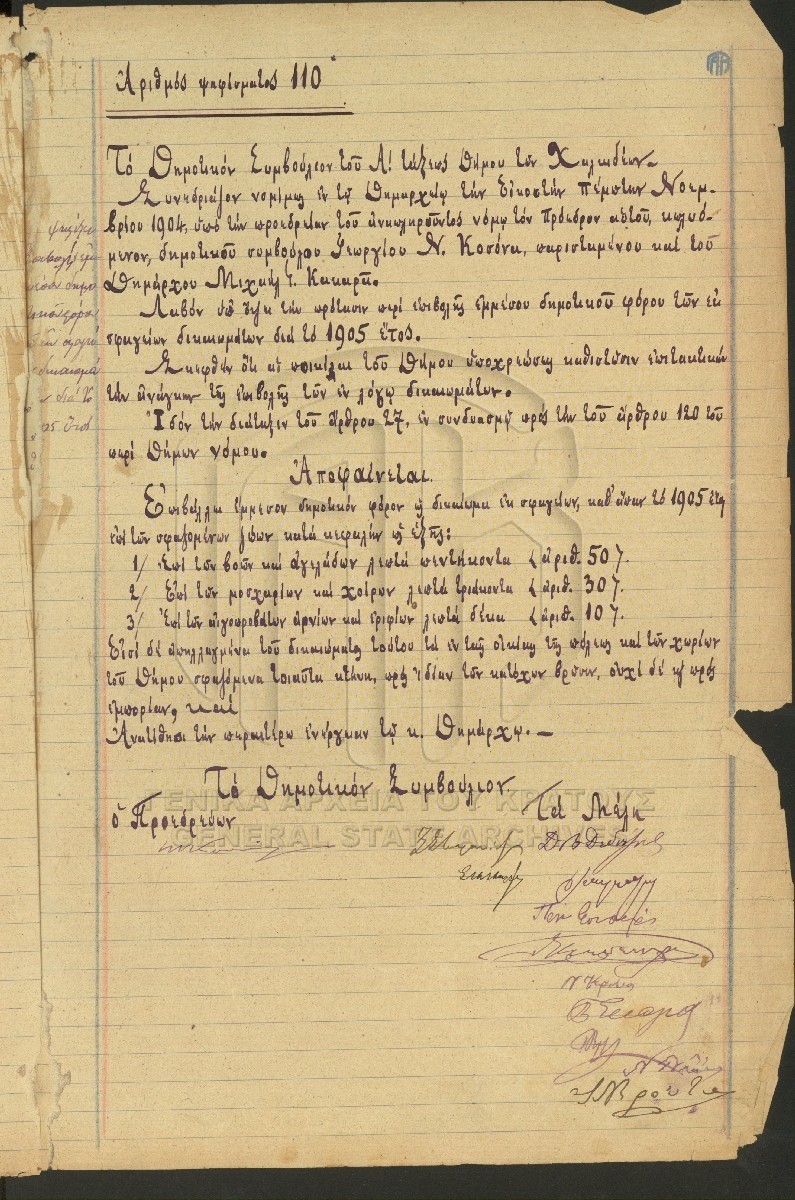 Ἀριθμός ψηφίσματος 110
Τό Δημοτικόν Συμβούλιον τοῦ Α! τάξεως Δήμου τῶν Χαλκιδέων.
Συνεδριάζον νομίμως ἐν τῷ Δημαρχείῳ τήν Εἰκοστήν πέμπτην Νοεμ-
βρίου 1904, ὑπό τήν προεδρείαν τοῦ ἀναπληροῦντος νόμῳ τόν πρόεδρον αὐτοῦ, κωλυό-
μενον, δημοτικοῦ συμβούλου Γεωργίου Ν. Κοσόνα, παρισταμένου καί τοῦ
Δημάρχου Μιχαήλ Γ. Κακαρᾶ.
Λαβόν ὑπ' ὄψει τήν πρότασιν περί ἐπιβολῆς ἐμμέσου δημοτικοῦ φόρου τῶν ἐκ
σφαγείων δικαιωμάτων διά τό 1905 ἔτος.
Σκεφθέν ὅτι αἱ ποικίλαι τοῦ Δήμου ὑποχρεώσεις καθιστῶσιν ἐπιτακτικήν
τήν ἀνάγκην τῆς ἐπιβολῆς τῶν ἐν λόγῳ δικαιωμάτων.
Ἰδόν τήν διάταξιν τοῦ ἄρθρου 27, ἐν συνδυασμῷ πρός τήν τοῦ ἄρθρου 120 τοῦ
περί Δήμων νόμου.
Ἀποφαίνεται.
Ἐπιβάλλει ἔμμεσον δημοτικόν φόρον ἤ δικαίωμα ἐκ σφαγείων, καθ' ἅπαν τό 1905 ἔτος
ἐπί τῶν σφαζομένων ζώων κατά κεφαλήν ὡς ἑξῆς:
1/ Ἐπί τῶν βοῶν καί ἀγελάδων λεπτά πεντήκοντα ἀριθ. 50
2/ Ἐπί τῶν μοσχαρίων καί χοίρων λεπτά τριάκοντα ἀριθ. 30
3/ Ἐπί τῶν αἰγοπροβάτων ἀρνίων καί ἐριφίων λεπτά δέκα ἀριθ. 10
Εἰσί δέ ἀπηλλαγμένα τοῦ δικαιώματος τούτου τά ἐν ταῖς οἰκίαις τῆς πόλεως καί τῶν χωρίων
τοῦ Δήμου σφαζόμενα τοιαῦτα κτήνη, πρός ἰδίαν τῶν κατόχων βρῶσιν, οὐχί δέ καί πρός
ἐμπορίαν, καί
Ἀνατίθησι τήν περαιτέρω ἐνέργειαν τῷ κ. Δημάρχῳ.—
Τό Δημοτικόν Συμβούλιον.
ὁ Προεδρεύων
Τά Μέλη
ψήφισμα
ἐπιβολῆς ἐμ-
μέσου δημο-
τικοῦ φόρου
δικαιωμά
διά τό
ἔτος
ΓΕΝΙΚΑ ΑΡΧΕΙΑ ΤΟΥ ΚΡΑΤΟΥΣ
GENERAL STATE ARCHIVES